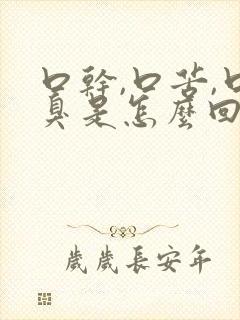 口幹,口苦,口
臭是怎麼回
歲歲長安年